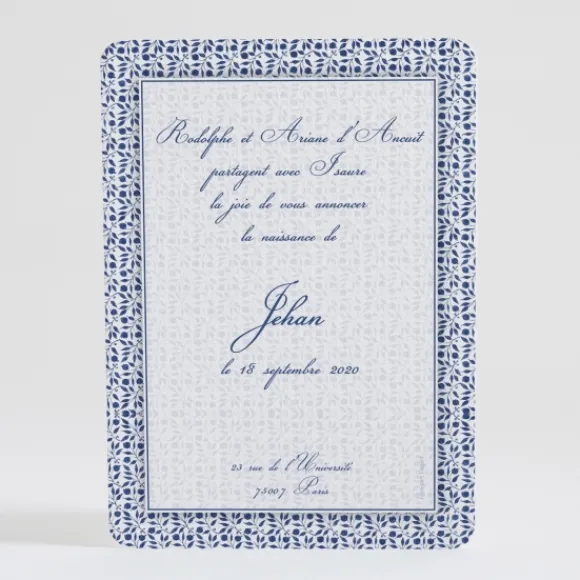 Rodolphe et Ariane d'Ancuit
partagent avec Isaure
la joie de vous annoncer
la naissance de
Jehan
le 18 septembre 2020
23 rue de l'Université
75007 Paris